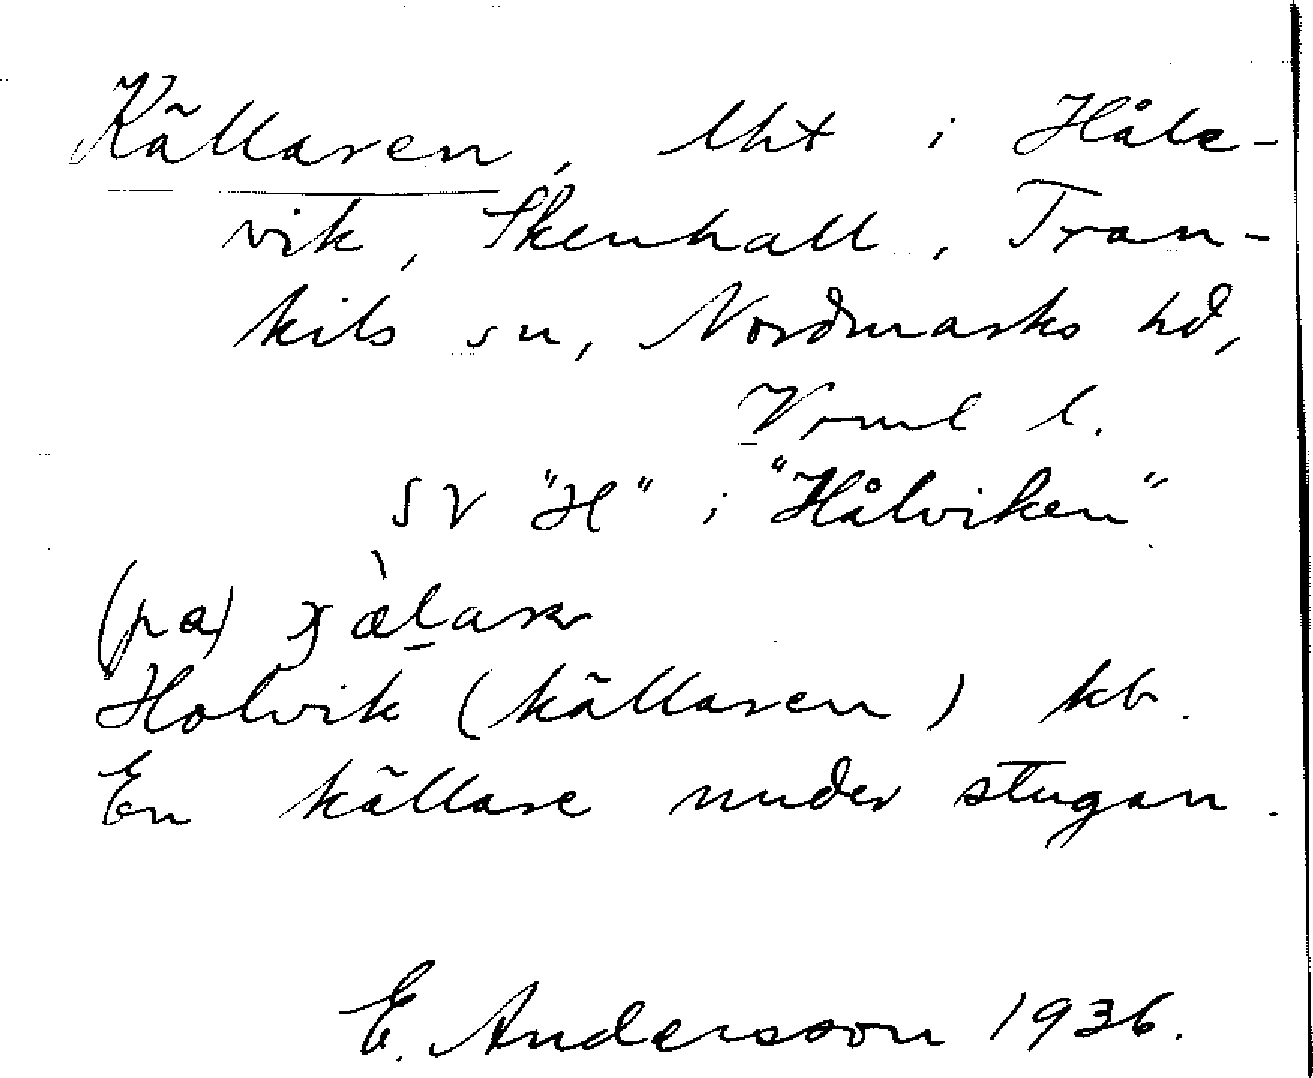 Källaren, lht i Håle-
vik, Skenhall, Tran-
kils sn, Nordmarks hd,
Vrml l.
SV "H" i "Hålviken"
(pa)
Holvik (källaren) kb.
En källare under stugan.
E. Andersson 1936.